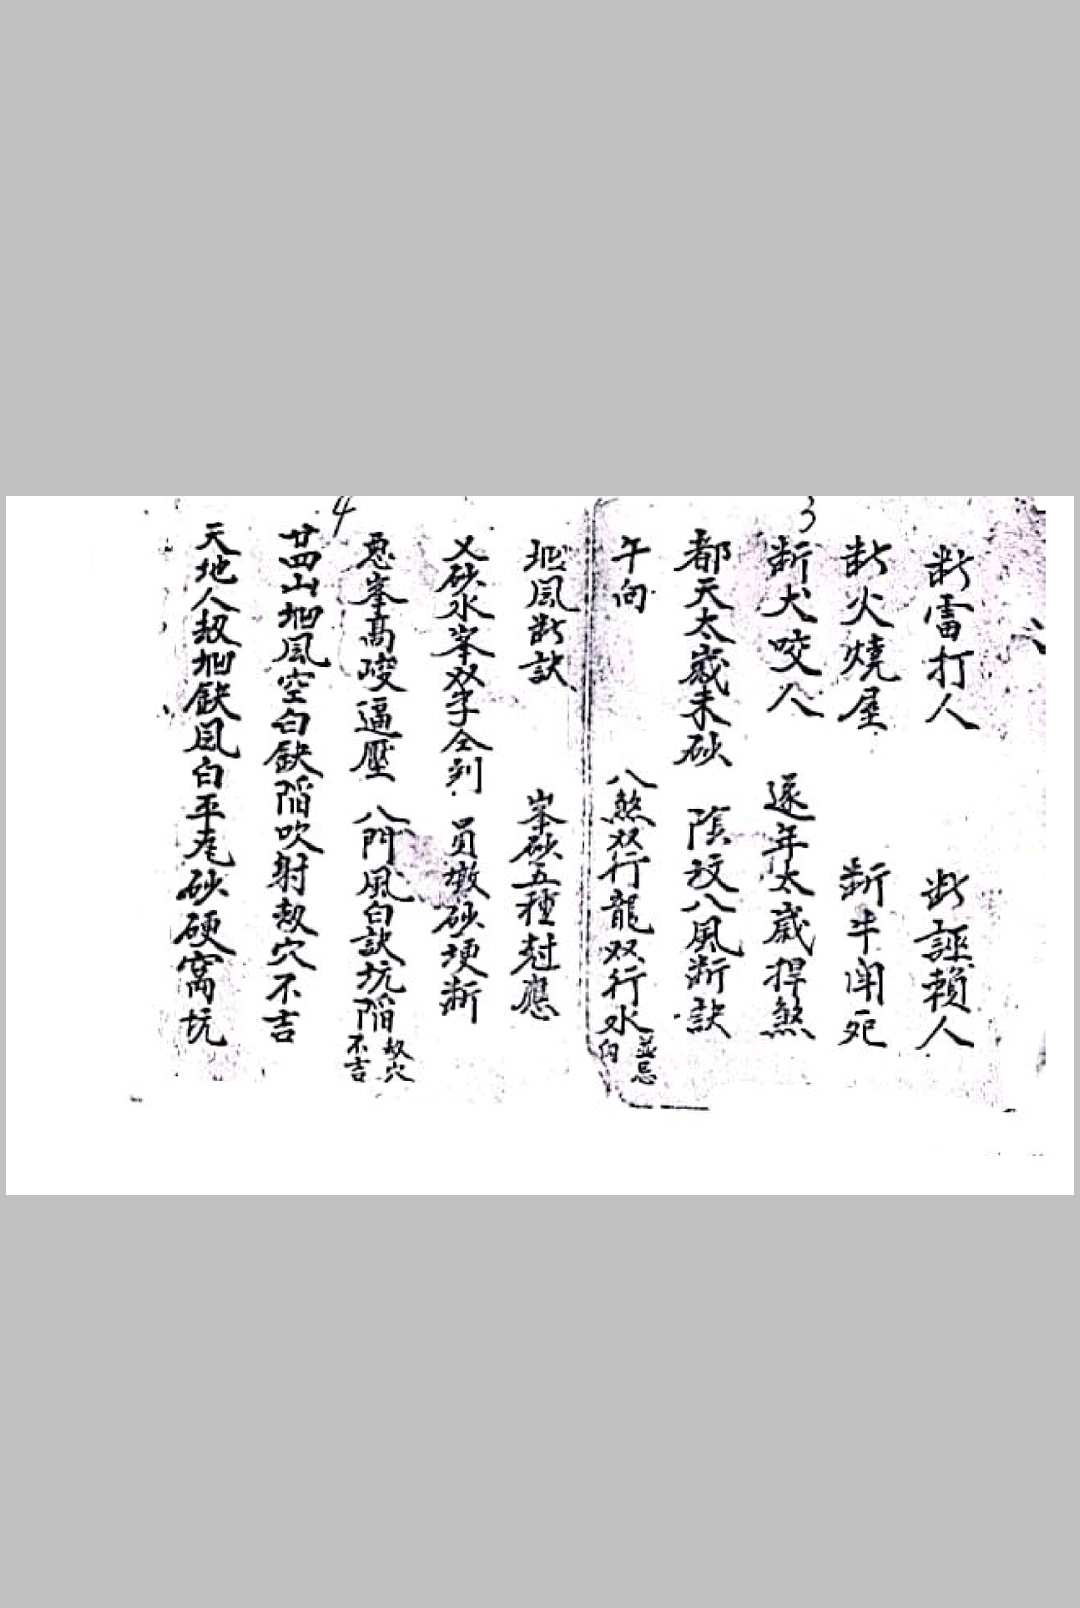 3
断雷打人　断誣賴人
断火燒屋　断牛闲死
断犬咬人　逐年太歲捍煞
都天太歲未砂　陰坟八風断訣
午向　八煞双行龍双行水並忌向
凹風断訣　峯砂五種尅應
4
义砂水峯双手仝到　員墩砂埂断
惡峯高峻逼壓　八門風白訣坑陷劫穴不吉
廿四山凹風空白缺陷吹射劫穴不吉
天地人劫凹缺風白平尨砂硬窩坑